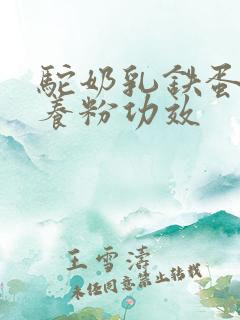 駝奶乳鉄蛋
養粉功效
王雪濤
未经同意禁止转载